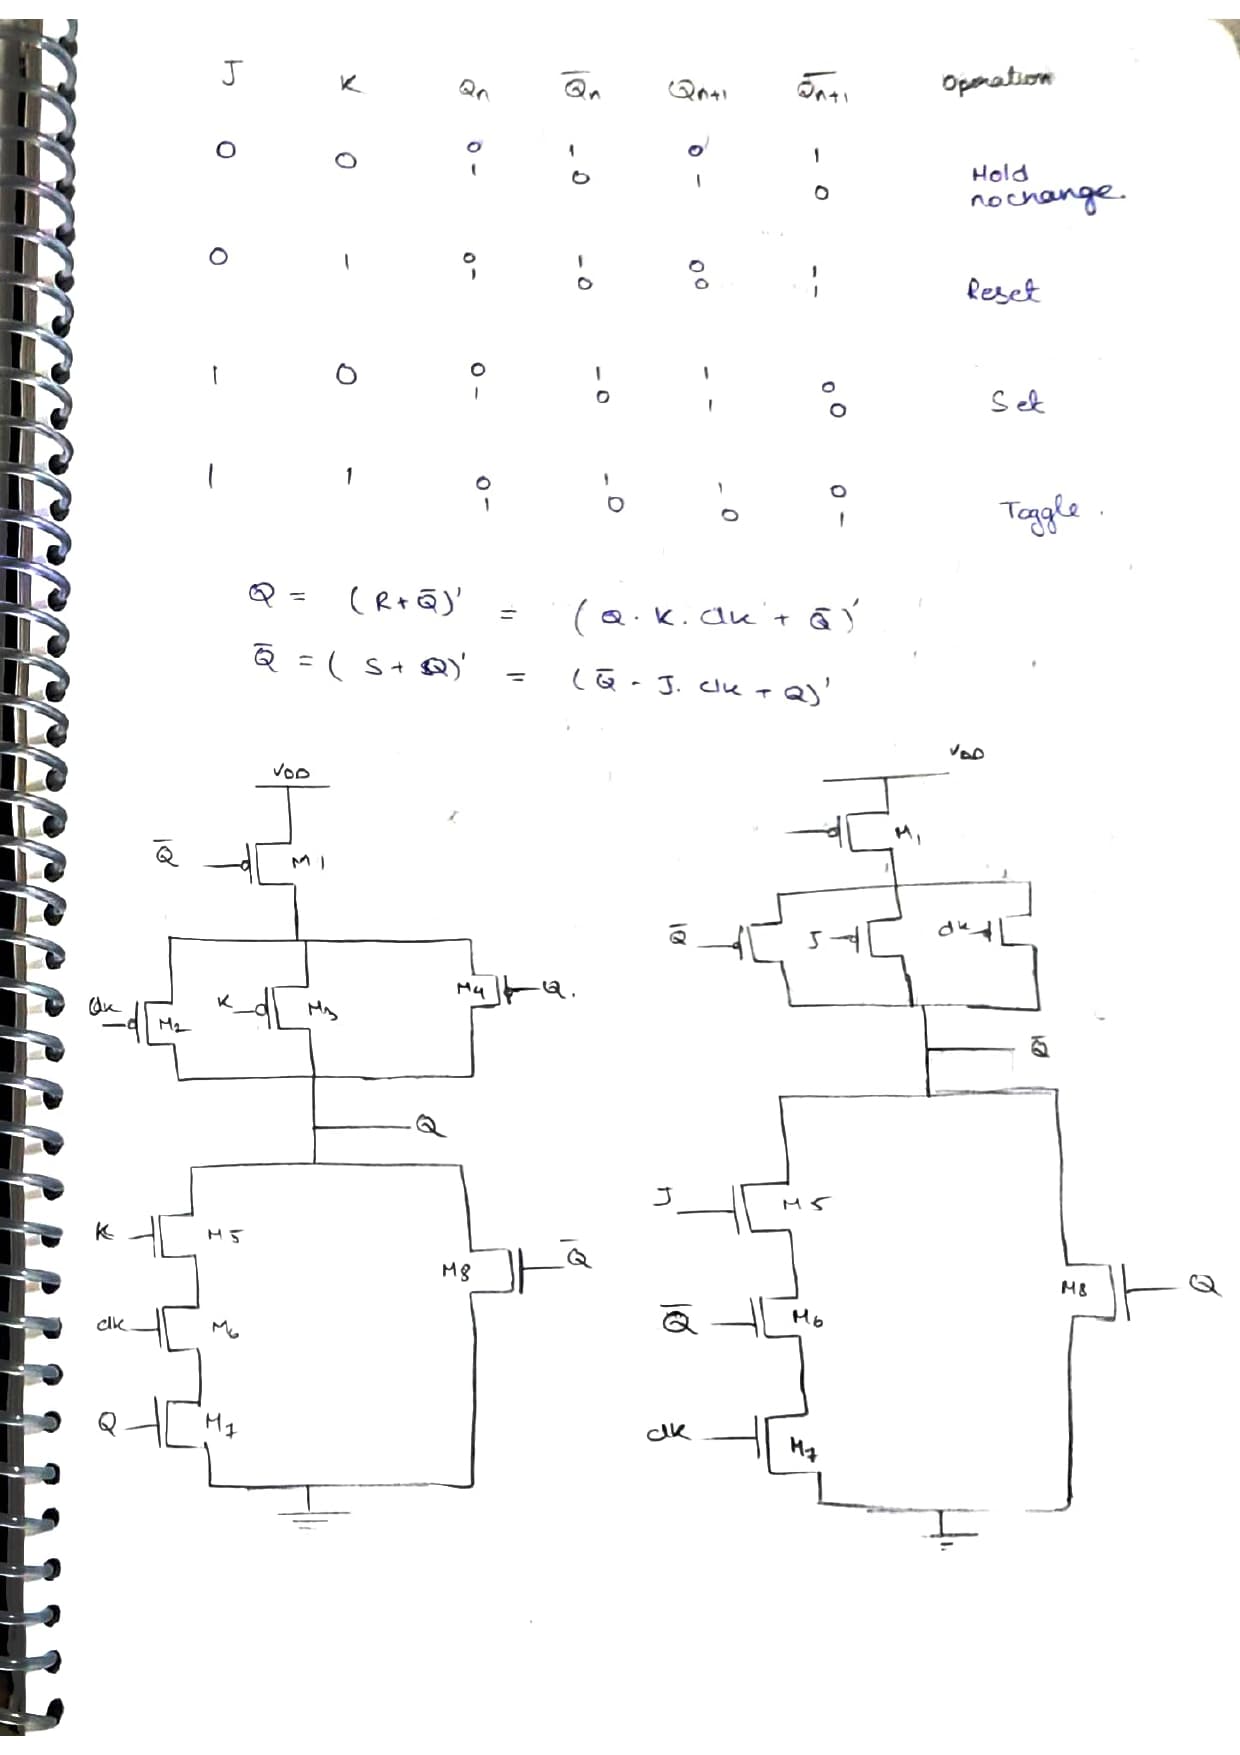 J K Qn Q̅n Qn+1 Q̅n+1 Operation
0 0 0 1 0 1 Hold
1 0 1 0 nochange.
0 1 0 1 0 1 Reset
1 0 0 1
1 0 0 1 1 0 Set
1 0 1 0
1 1 0 1 1 0 Toggle.
1 0 0 1
Q = (R+Q̅)' = (Q.K.clk + Q̅)'
Q̅ = (S+Q)' = (Q̅.J.clk + Q)'
VDD
Q̅ M1
clk M2 K M3 M4 Q.
Q
K M5
clk M6
Q M7
M8 Q̅
VDD
M1
Q̅ J clk
Q̅
J M5
Q̅ M6
clk M7
M8 Q